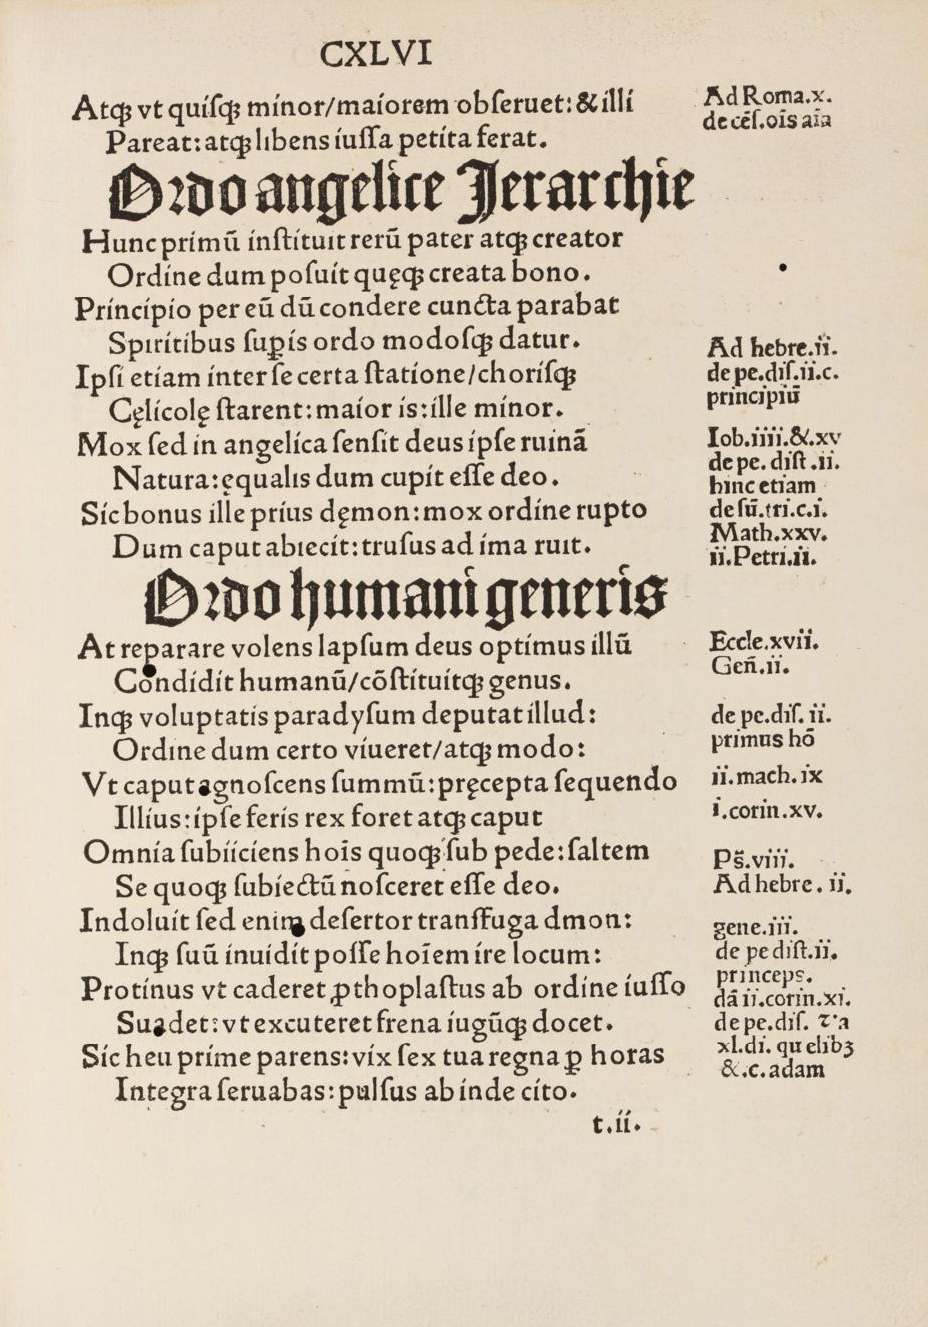 CXLVI
Atqꝫ vt quiſqꝫ minor/maiorem obſeruet:&illi
Pareat:atqꝫ libens iuſſa petita ferat.
Ordo angelice Jerarchie
Hunc primū inſtituit rerū pater atqꝫ creator
Ordine dum poſuit quęqꝫ creata bono.
Principio per eū dū condere cuncta parabat
Spiritibus ſuꝑis ordo modoſqꝫ datur.
Ipſi etiam inter ſe certa ſtatione/choriſqꝫ
Cęlicolę ſtarent:maior is:ille minor.
Mox ſed in angelica ſenſit deus ipſe ruinā
Natura:ęqualis dum cupit eſſe deo.
Sic bonus ille prius dęmon:mox ordine rupto
Dum caput abiecit:truſus ad ima ruit.
Ordo humani generis
At reparare volens lapſum deus optimus illū
Condidit humanū/cōſtituitqꝫ genus.
Inqꝫ voluptatis paradyſum deputat illud:
Ordine dum certo viueret/atqꝫ modo:
Vt caput agnoſcens ſummū:pręcepta ſequendo
Illius:ipſe feris rex foret atqꝫ caput
Omnia ſubiiciens hoīs quoqꝫ ſub pede:ſaltem
Se quoqꝫ ſubiectū noſceret eſſe deo.
Indoluit ſed enim deſertor tranſfuga dmon:
Inqꝫ ſuū inuidit poſſe hoīem ire locum:
Protinus vt caderet ꝓthoplaſtus ab ordine iuſſo
Suadet:vt excuteret frena iugūqꝫ docet.
Sic heu prime parens:vix ſex tua regna ꝑ horas
Integra ſeruabas:pulſus ab inde cito.
t.ii.
Ad Roma.x.
de cēſ.oīs aīa
Ad hebre.ii.
de pe.diſ.ii.c.
principiū
Iob.iiii.&.xv
de pe. diſt .ii.
hinc etiam
de ſū.tri.c.i.
Math.xxv.
ii.Petri.ii.
Eccle.xvii.
Geñ.ii.
de pe.diſ. ii.
primus hō
ii.mach.ix
i.corin.xv.
Ps̄.viii.
Ad hebre. ii.
gene.iii.
de pe diſt.ii.
princeps.
dā ii.corin.xi.
de pe.diſ. ⁊ a
xl.di. quelibꝫ
&.c.adam